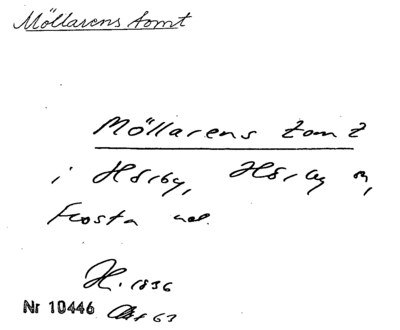 Möllarens tomt
Möllarens tomt
i Hörby, Hörby sn,
Frosta hd.
H. 1836
Nr 10446